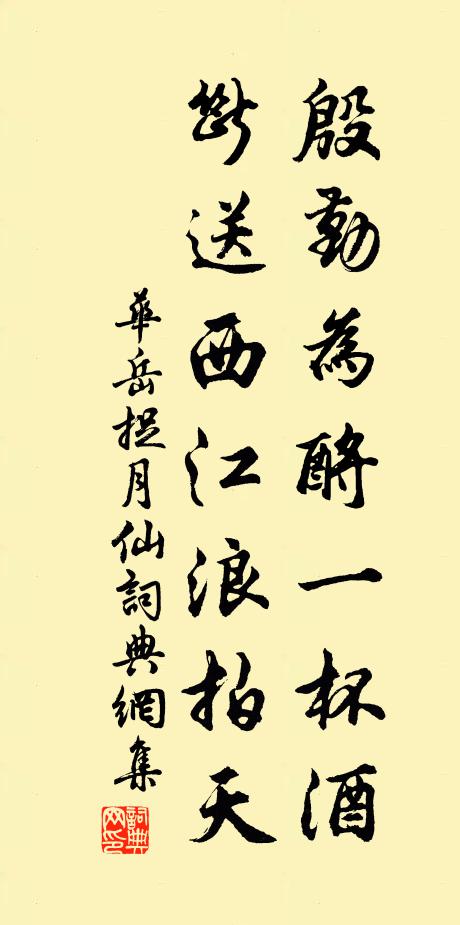 殷勤為酹一杯酒
斷送西江浪拍天
華岳捉月仙詞典網集
詞典網印